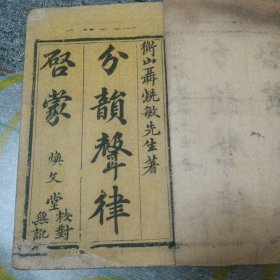 衡山聶銑敏先生著
分韻聲律
啓蒙
煥文堂校對無訛